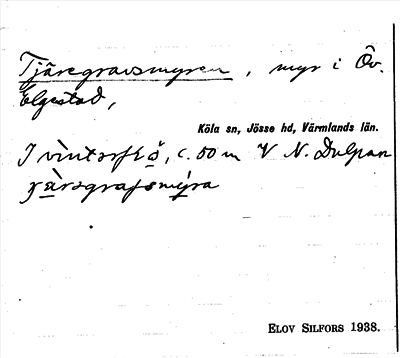 Tjäregravsmyren, myr i Öv.
Elgestad,
Köla sn, Jösse hd, Värmlands län.
I vintorflå, c. 50 m V N. Dulpan
ELOV SILFORS 1938.